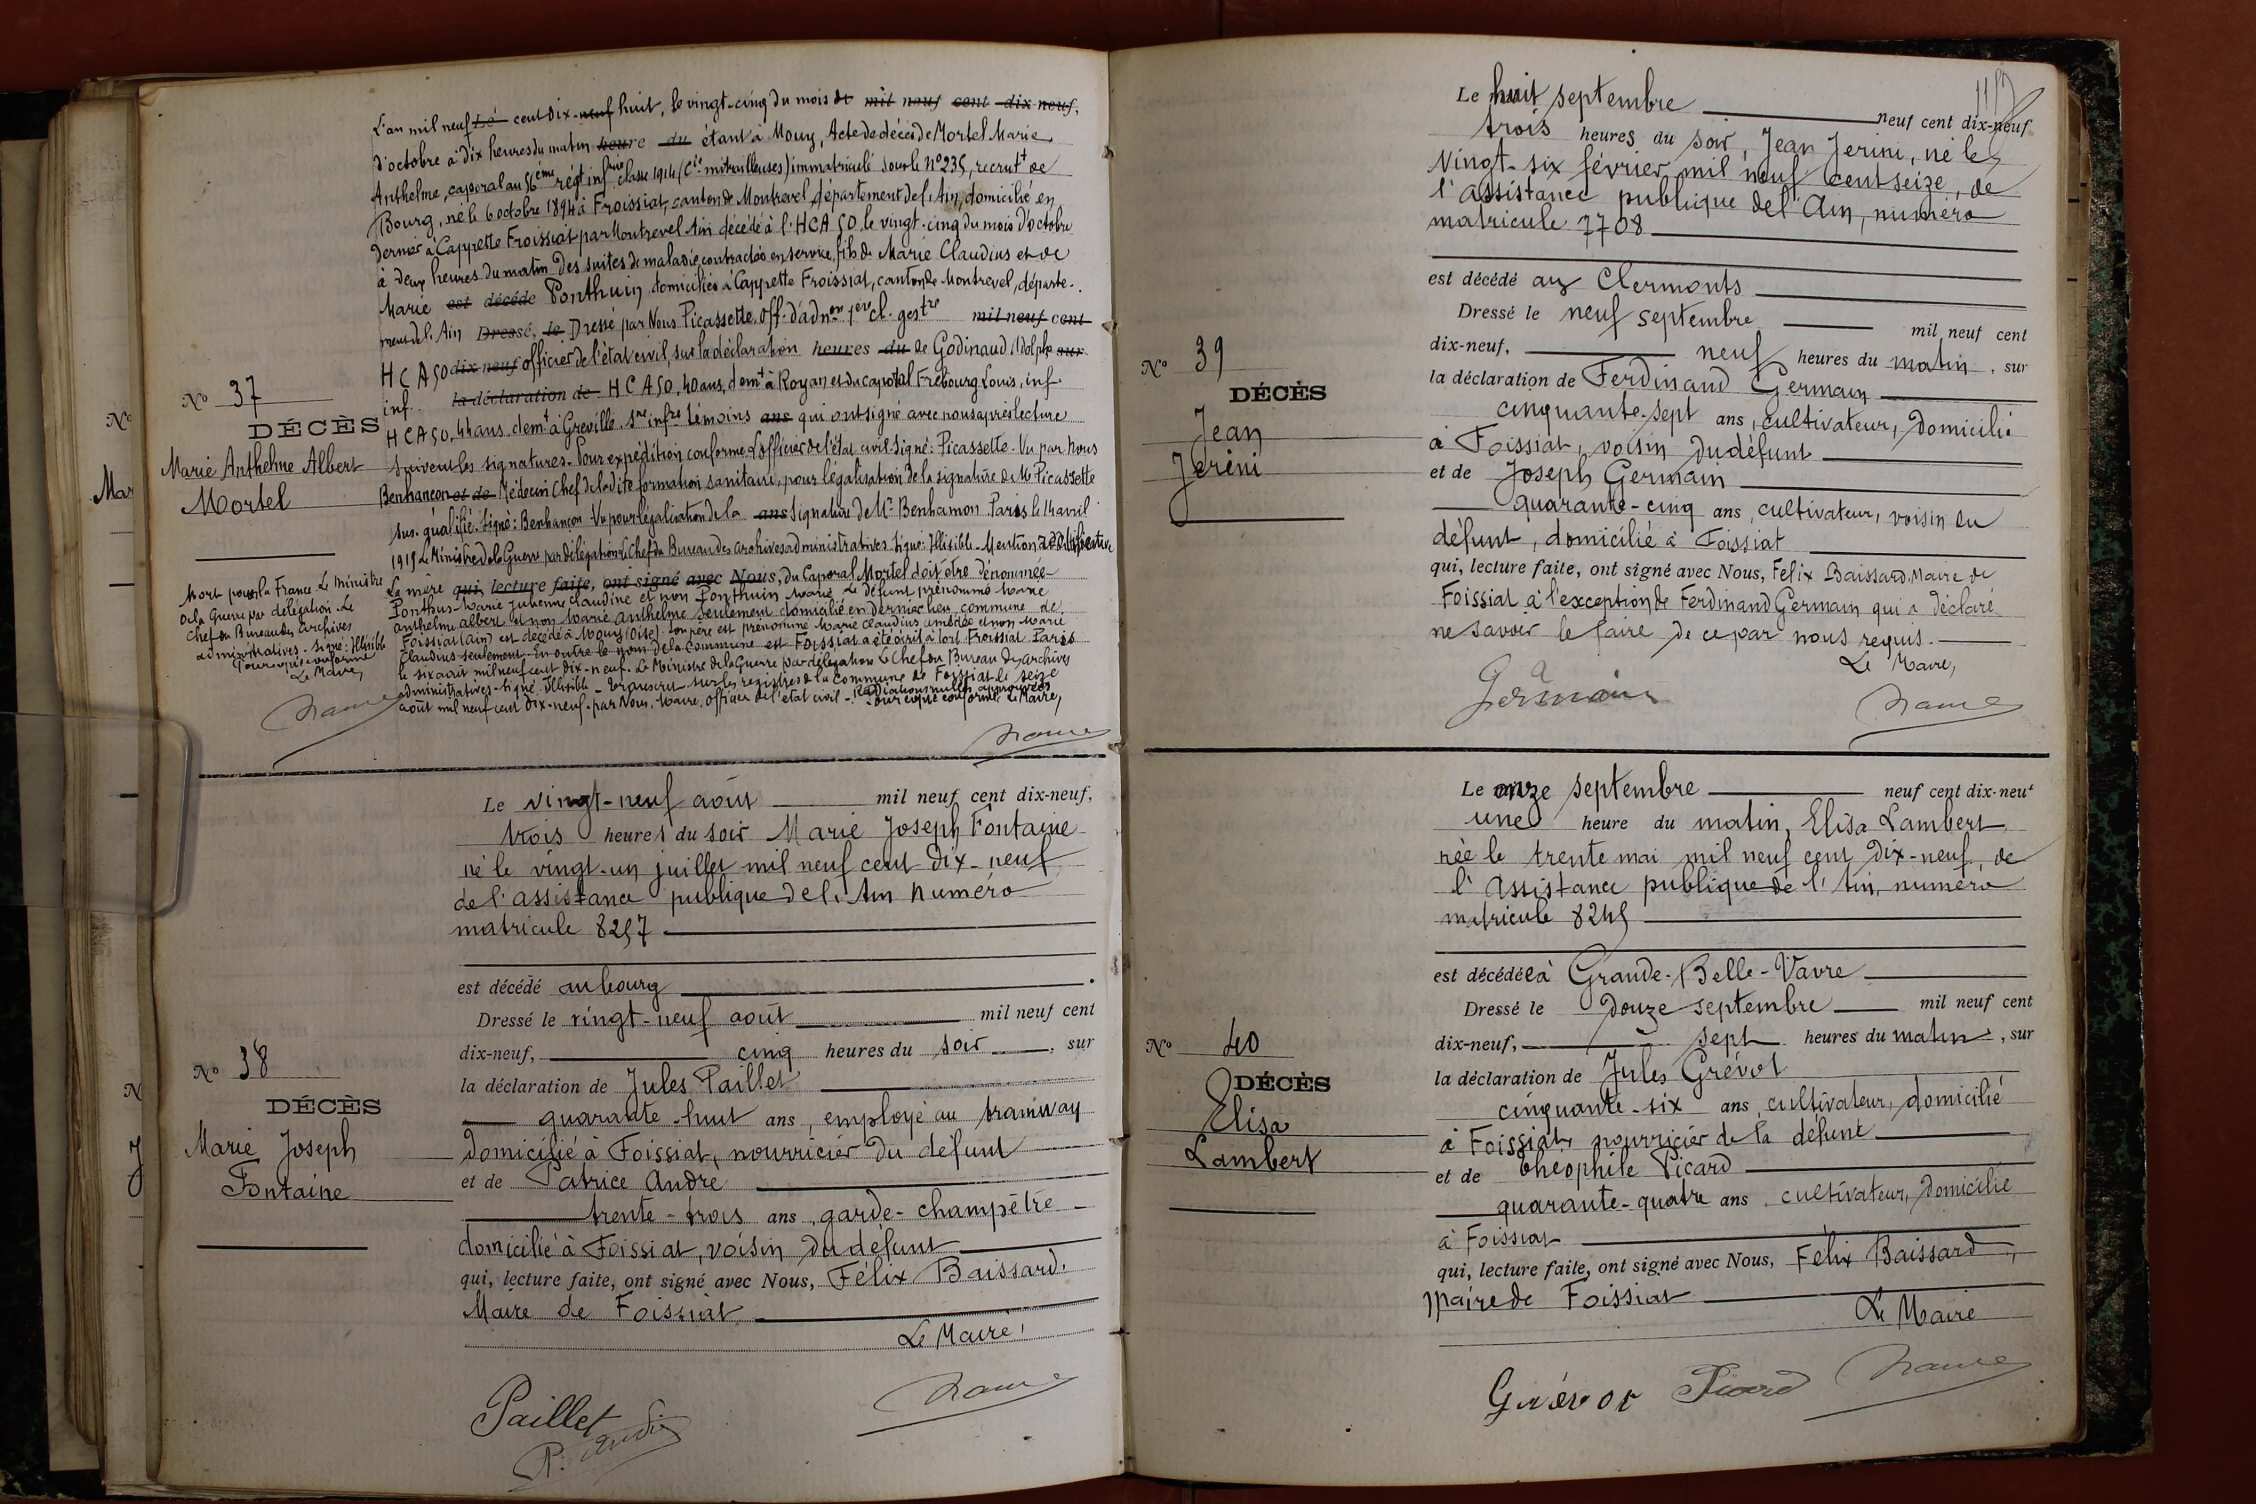 L'an mil neuf cent dix-neuf huit, le vingt-cinq du mois de mil neuf cent dix-neuf,
d'octobre à dix heures du matin heure du étant à Mouy, Acte de décès de Mortel Marie
Anthelme, caporal au 56ème régt infrie classe 1914 (Cie mitrailleuses) immatriculé sous le n° 235, recrutt de
Bourg, né le 6 octobre 1894 à Froissiat, canton de Montrevel département de l'Ain, domicilié en
dernier à Cappette Froissiat par Montrevel Ain décédé à l'HCA 50 le vingt-cinq du mois d'octobre
à deux heures du matin des suites de maladie contractée en service, fils de Marie Claudius et de
Marie est décédé Ponthuin domiciliés à Cappette Froissiat, canton de Montrevel, départe-
ment de l'Ain Dressé, le Dressé par Nous Picassette, off. d'adon 1ère cl. gestre mil neuf cent
HCA 50 dix-neuf officier de l'état civil, sur la déclaration heures du de Godinaud Adolphe sur
inf. la déclaration de HCA 50, 40 ans, demt à Royan et du caporal Frébourg Louis, inf.
HCA 50, 44 ans, demt à Gréville, Sne infre témoins ans qui ont signé avec nous après lecture
Suivent les signatures. Pour expédition conforme L'officier de l'état civil Signé: Picassette. Vu par Nous
N° 37
DÉCÈS
Marie Anthelme Albert
Mortel
Benhançon et de Médecin Chef de la dite formation sanitaire, pour légalisation de la signature de Mr Picassette
sus-qualifié. Signé: Benhançon Vu pour légalisation de la ans Signature de Mr Benhamon Paris le 14 avril
1919 Le Ministre de la Guerre par délégation Le Chef du Bureau des Archives administratives Signé: Illisible - Mention rectificative
La mère qui, lecture faite, ont signé avec Nous, du Caporal Mortel doit être dénommée
Ponthus Marie Julienne Claudine et non Ponthuin Marie Le défunt prénommé Marie
Anthelme Albert et non Marie Anthelme seulement domicilié en dernier lieu, commune de
Foissiat (Ain) est décédé à Mouy (Oise). Son père est prénommé Marie Claudius Ambroise et non Marie
Claudius seulement. En outre le nom de la Commune est Foissiat a été écrit à tort Froissiat Paris
le six août mil neuf cent dix-neuf. Le Ministre de la Guerre par délégation Le Chef du Bureau des Archives
administratives. Signé: Illisible - Transcrit sur les registres de la commune de Foissiat le seize
août mil neuf cent dix-neuf par Nous, Maire, officier de l'état civil - Radiations nulles approuvées
Pour copie conforme, Le Maire,
Mort pour la France Le Ministre
de la Guerre par délégation. Le
Chef du Bureau des Archives
administratives - Signé: Illisible
Pour copie conforme
Le Maire,
N° 38
DÉCÈS
Marie Joseph
Fontaine
Le vingt-neuf août mil neuf cent dix-neuf,
trois heures du soir Marie Joseph Fontaine
né le vingt-un juillet mil neuf cent dix-neuf
de l'assistance publique de l'Ain numéro
matricule 8257
est décédé au bourg
Dressé le vingt-neuf août mil neuf cent
dix-neuf, cinq heures du soir, sur
la déclaration de Jules Paillet
quarante-huit ans, employé au tramway
domicilié à Foissiat, nourricier du défunt
et de Patrice André
trente-trois ans, garde-champêtre
domicilié à Foissiat, voisin du défunt
qui, lecture faite, ont signé avec Nous, Félix Baissard,
Maire de Foissiat
Le Maire,
Paillet
P. André
117
N° 39
DÉCÈS
Jean
Jerini
Le huit septembre neuf cent dix-neuf
trois heures du soir, Jean Jerini, né le
vingt-six février mil neuf cent seize, de
l'assistance publique de l'Ain, numéro
matricule 7708
est décédé aux Clermonts
Dressé le neuf septembre mil neuf cent
dix-neuf, neuf heures du matin, sur
la déclaration de Ferdinand Germain
cinquante-sept ans, cultivateur, domicilié
à Foissiat, voisin du défunt
et de Joseph Germain
quarante-cinq ans, cultivateur, voisin du
défunt, domicilié à Foissiat
qui, lecture faite, ont signé avec Nous, Félix Baissard, Maire de
Foissiat à l'exception de Ferdinand Germain qui a déclaré
ne savoir le faire de ce par nous requis.
Le Maire,
Germain
N° 40
DÉCÈS
Elisa
Lambert
Le onze septembre neuf cent dix-neuf
une heure du matin, Elisa Lambert,
née le trente mai mil neuf cent dix-neuf, de
l'Assistance publique de l'Ain, numéro
matricule 8245
est décédée à Grande-Belle-Vavre
Dressé le douze septembre mil neuf cent
dix-neuf, sept heures du matin, sur
la déclaration de Jules Grévot
cinquante-six ans, cultivateur, domicilié
à Foissiat, nourricier de la défunte
et de Théophile Picard
quarante-quatre ans, cultivateur, domicilié
à Foissiat
qui, lecture faite, ont signé avec Nous, Félix Baissard,
maire de Foissiat
Le Maire
Grévot Picard